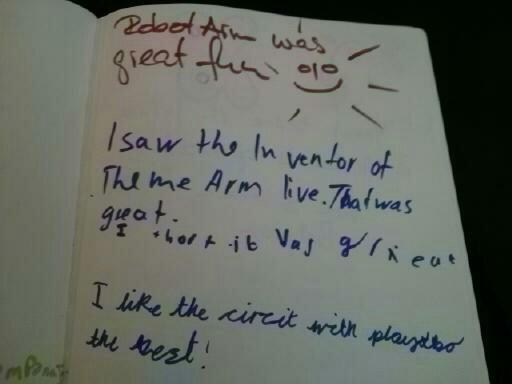 Robot Arm was
great fun.
I saw the Inventor of
The me Arm live. That was
great.
I thort it Vas
I like the circit with playdoo
the best!